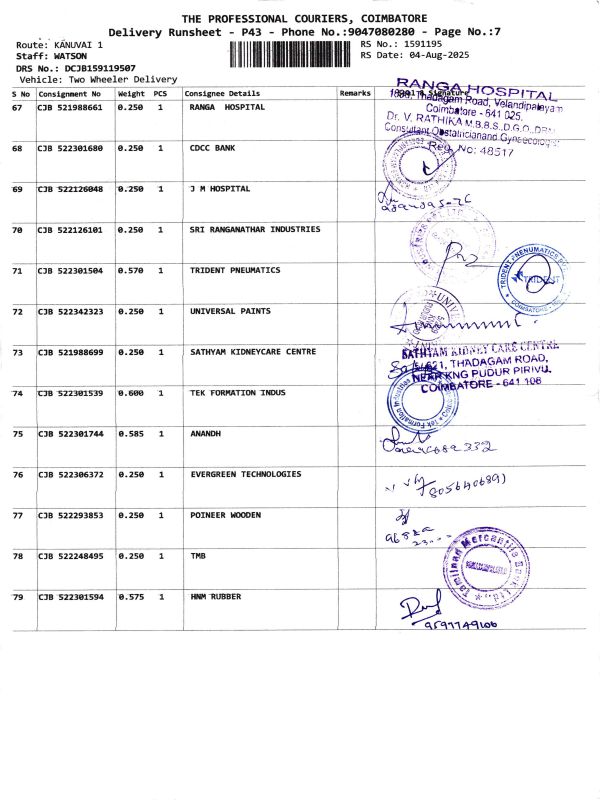 THE PROFESSIONAL COURIERS, COIMBATORE
Delivery Runsheet - P43 - Phone No.:9047080280 - Page No.:7
Route: KANUVAI 1
RS No.: 1591195
Staff: WATSON
RS Date: 04-Aug-2025
DRS No.: DCJB159119507
Vehicle: Two Wheeler Delivery
S No Consignment No Weight PCS Consignee Details Remarks Signature
RANGA HOSPITAL
Thadagam Road, Velandipalayam
Coimbatore - 641 025.
Dr. V. RATHIKA M.B.B.S.,D.G.O.,
Consultant Obstetrician and Gynaecologist
Reg. No: 48517
67 CJB 521988661 0.250 1 RANGA HOSPITAL
68 CJB 522301680 0.250 1 CDCC BANK
69 CJB 522126048 0.250 1 J M HOSPITAL
70 CJB 522126101 0.250 1 SRI RANGANATHAR INDUSTRIES
71 CJB 522301504 0.570 1 TRIDENT PNEUMATICS
TRIDENT PNEUMATICS
TRIDENT
COIMBATORE
72 CJB 522342323 0.250 1 UNIVERSAL PAINTS
73 CJB 521988699 0.250 1 SATHYAM KIDNEYCARE CENTRE
SATHYAM KIDNEY CARE CENTRE
THADAGAM ROAD,
NEAR KNG PUDUR PIRIVU,
COIMBATORE - 641 108
74 CJB 522301539 0.600 1 TEK FORMATION INDUS
Tek Formation Industries
75 CJB 522301744 0.585 1 ANANDH
76 CJB 522306372 0.250 1 EVERGREEN TECHNOLOGIES
77 CJB 522293853 0.250 1 POINEER WOODEN
78 CJB 522248495 0.250 1 TMB
Tamilnad Mercantile Bank Ltd.
79 CJB 522301594 0.575 1 HNM RUBBER
9597749100